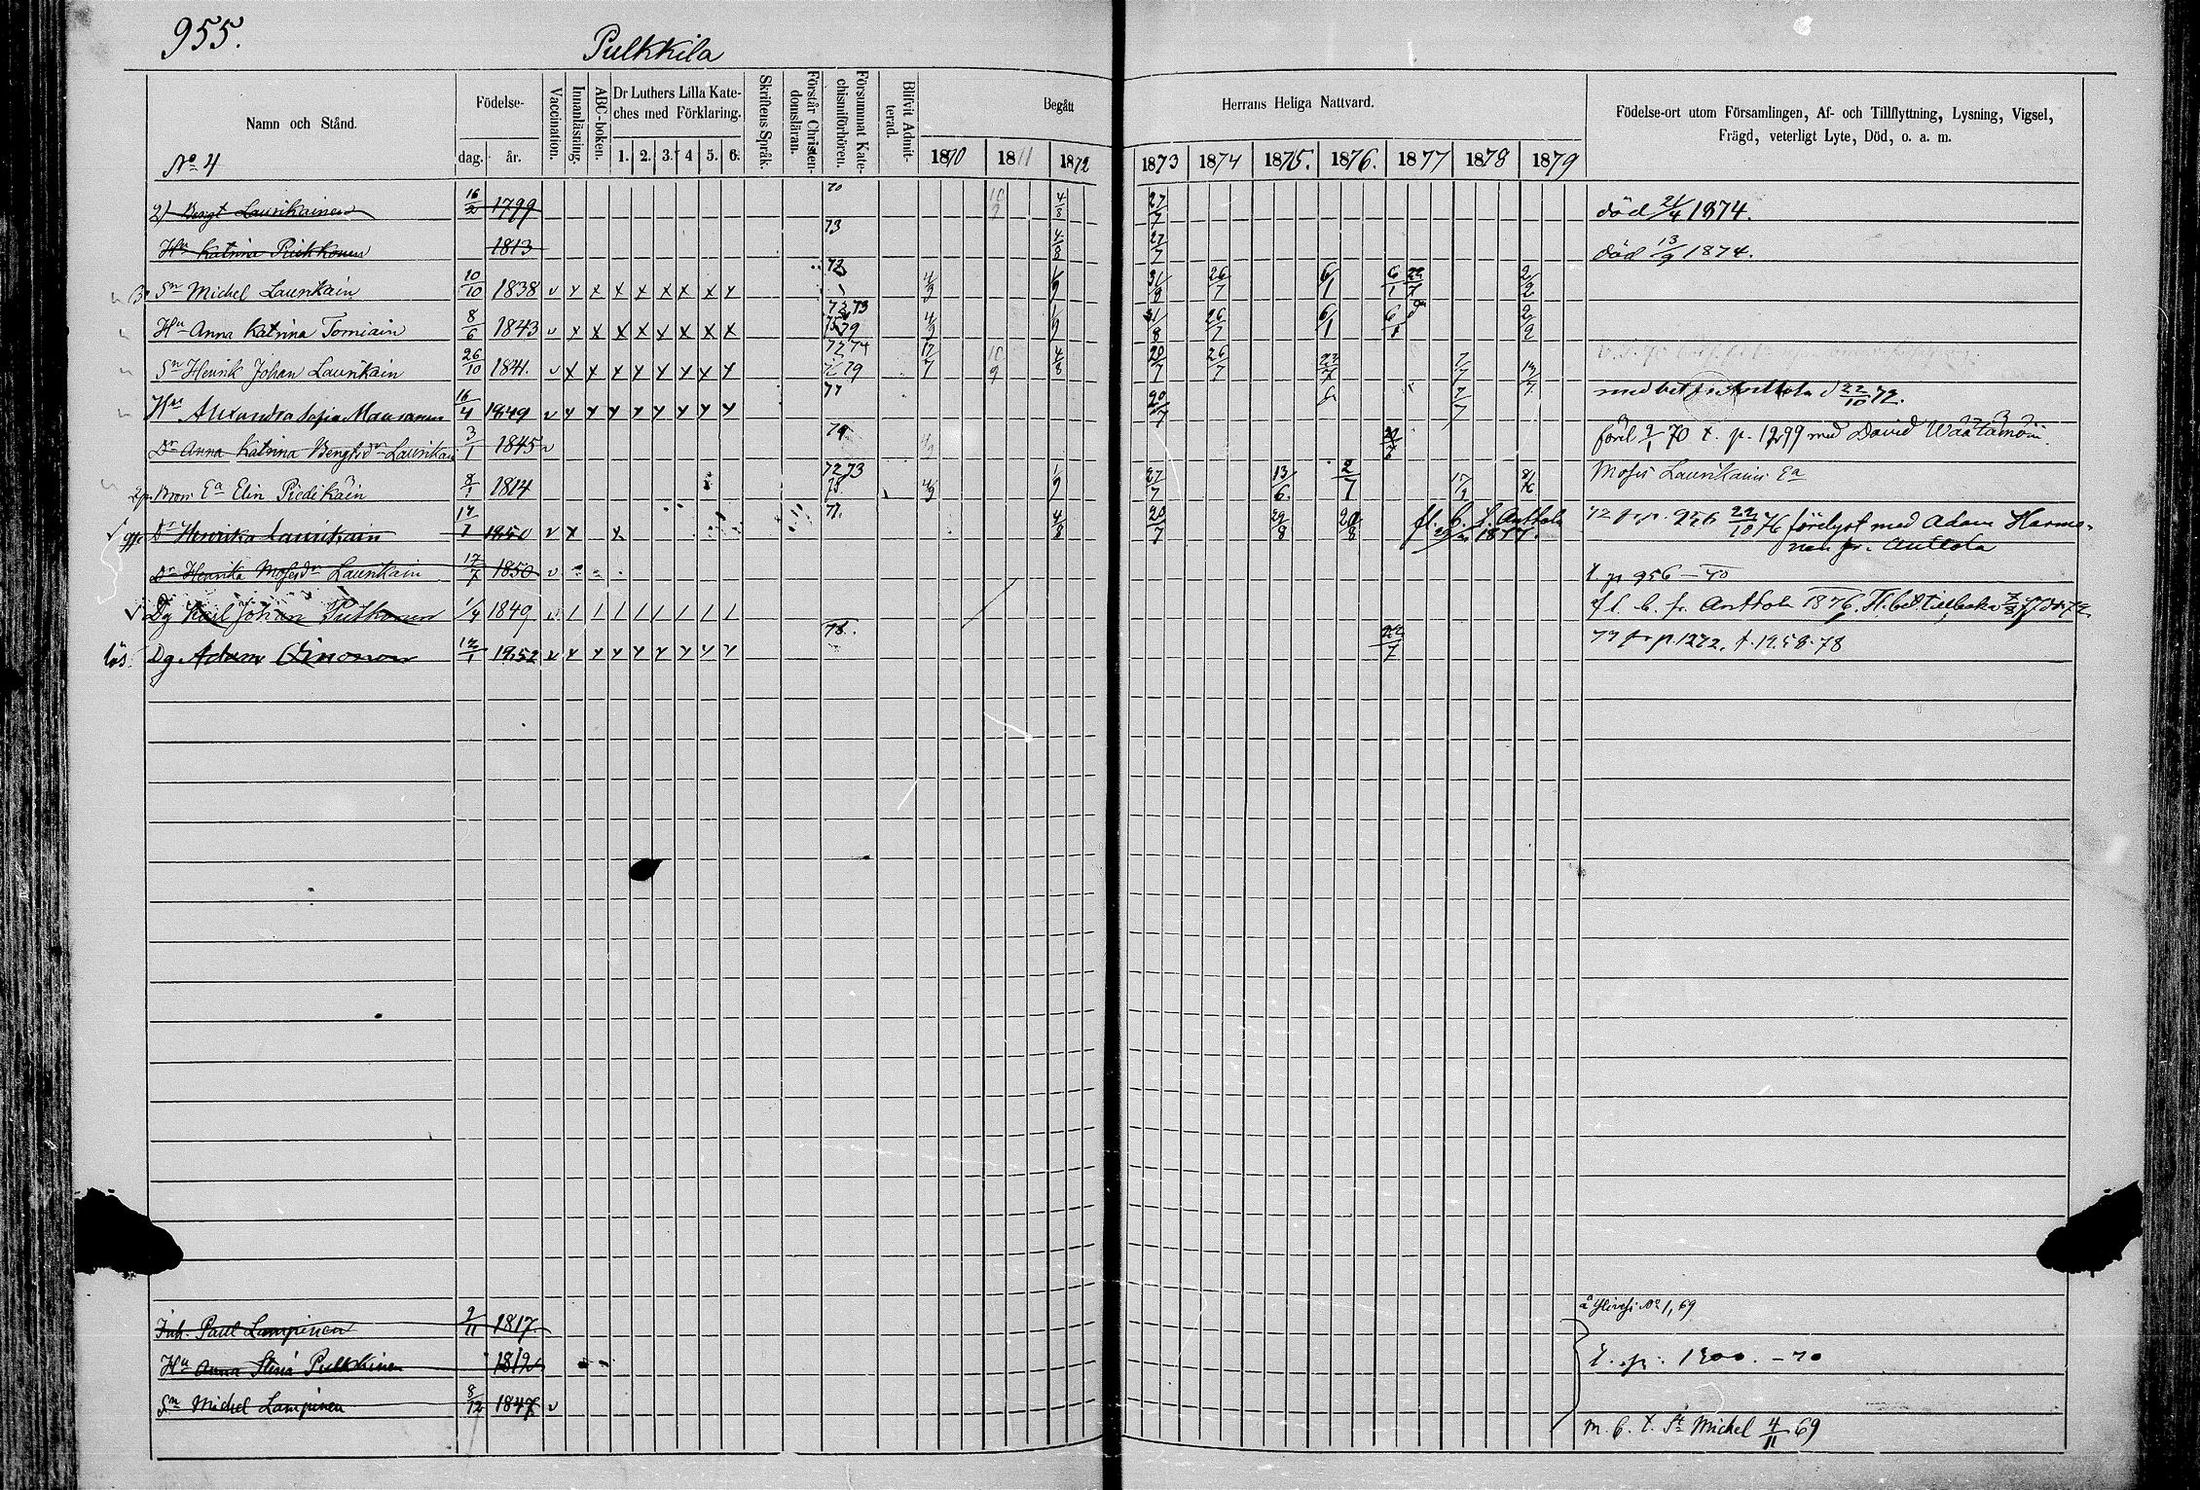 955.
Pulkkila
Namn och Stånd.
No 4
Födelse-
dag. år.
Vaccination.
Innanläsning.
ABC-boken.
Dr Luthers Lilla Kate-
ches med Förklaring.
1. 2. 3. 4 5. 6.
Skriftens Språk.
Förstår Christen-
domsläran.
Försummat Kate-
chismiförhören.
Blifvit Admit-
terad.
Begått Herrans Heliga Nattvard.
1870 1871 1872 1873 1874 1875. 1876. 1877 1878 1879
Födelse-ort utom Församlingen, Af- och Tillflyttning, Lysning, Vigsel,
Frägd, veterligt Lyte, Död, o. a. m.
2) Bengt Laurikainen 16/2 1799 70 10/9 4/8 27/7 död 21/4 1874.
Hu Katrina Piekkonen 1813 73 4/8 27/7 död 13/9 1874.
Sn Michel Laurikain 10/10 1838 v x x x x x x x x 72 4/9 1/9 31/8 26/7 6/1 6/1 22/7 2/2
Hu Anna Katrina Torniain 8/6 1843 v x x x x x x x x 72 73 75 79 4/9 1/9 31/8 26/7 6/1 6/1 2/2
Sn Henrik Johan Laurikain 26/10 1841. v x x x x x x x x 72 74 79 17/7 10/9 4/8 20/7 26/7 23/7 7/7 13/7
Hu Alexandra Sofia Manranen 16/4 1849 v x x x x x x x x 77 20/7 7/7 med bet fr Anttola d 22/10 72.
Dr Anna Katrina Bengtsdr Laurikain 3/1 1845 v 79 förel 9/1 70 t. p. 1299 med David Waatamöin
Bror Ea Elin Piedikäin 8/1 1814 72 73 75. 4/9 1/9 27/7 13/6. 2/7 17/2 8/6 Moses Laurikains Ea
Dr Henrika Laurikain 17/7 1850 v x x 77. 4/8 20/7 29/8 20/8 fl. b. t. Anttola 1877. 72 fr p. 956 22/10 76 förelyst med Adam Harmo-
nen fr. Anttola
Dr Henrika Mosesdr Laurikain 17/7 1850 v t. p 956 - 70
Dg Karl Johan Putkonen 1/4 1849 fl. b. fr. Anttola 1876.
lös. Dg Adam Oinonen 12/1 1852 v x x x x x x x x 78. 22/7 77 fr p. 1272. t. 1258. 78
Inh. Paul Lampinen 9/11 1817. å Ylivesi No 1, 69
Hu Anna Stina Pulkkinen 1812 t. p. 1300. - 70
Sn Michel Lampinen 8/12 1847 v
m. b. t. St Michel 4/11 69